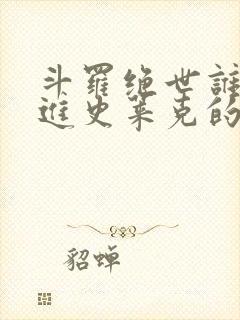 斗羅绝世誰
進史莱克的
貂蝉